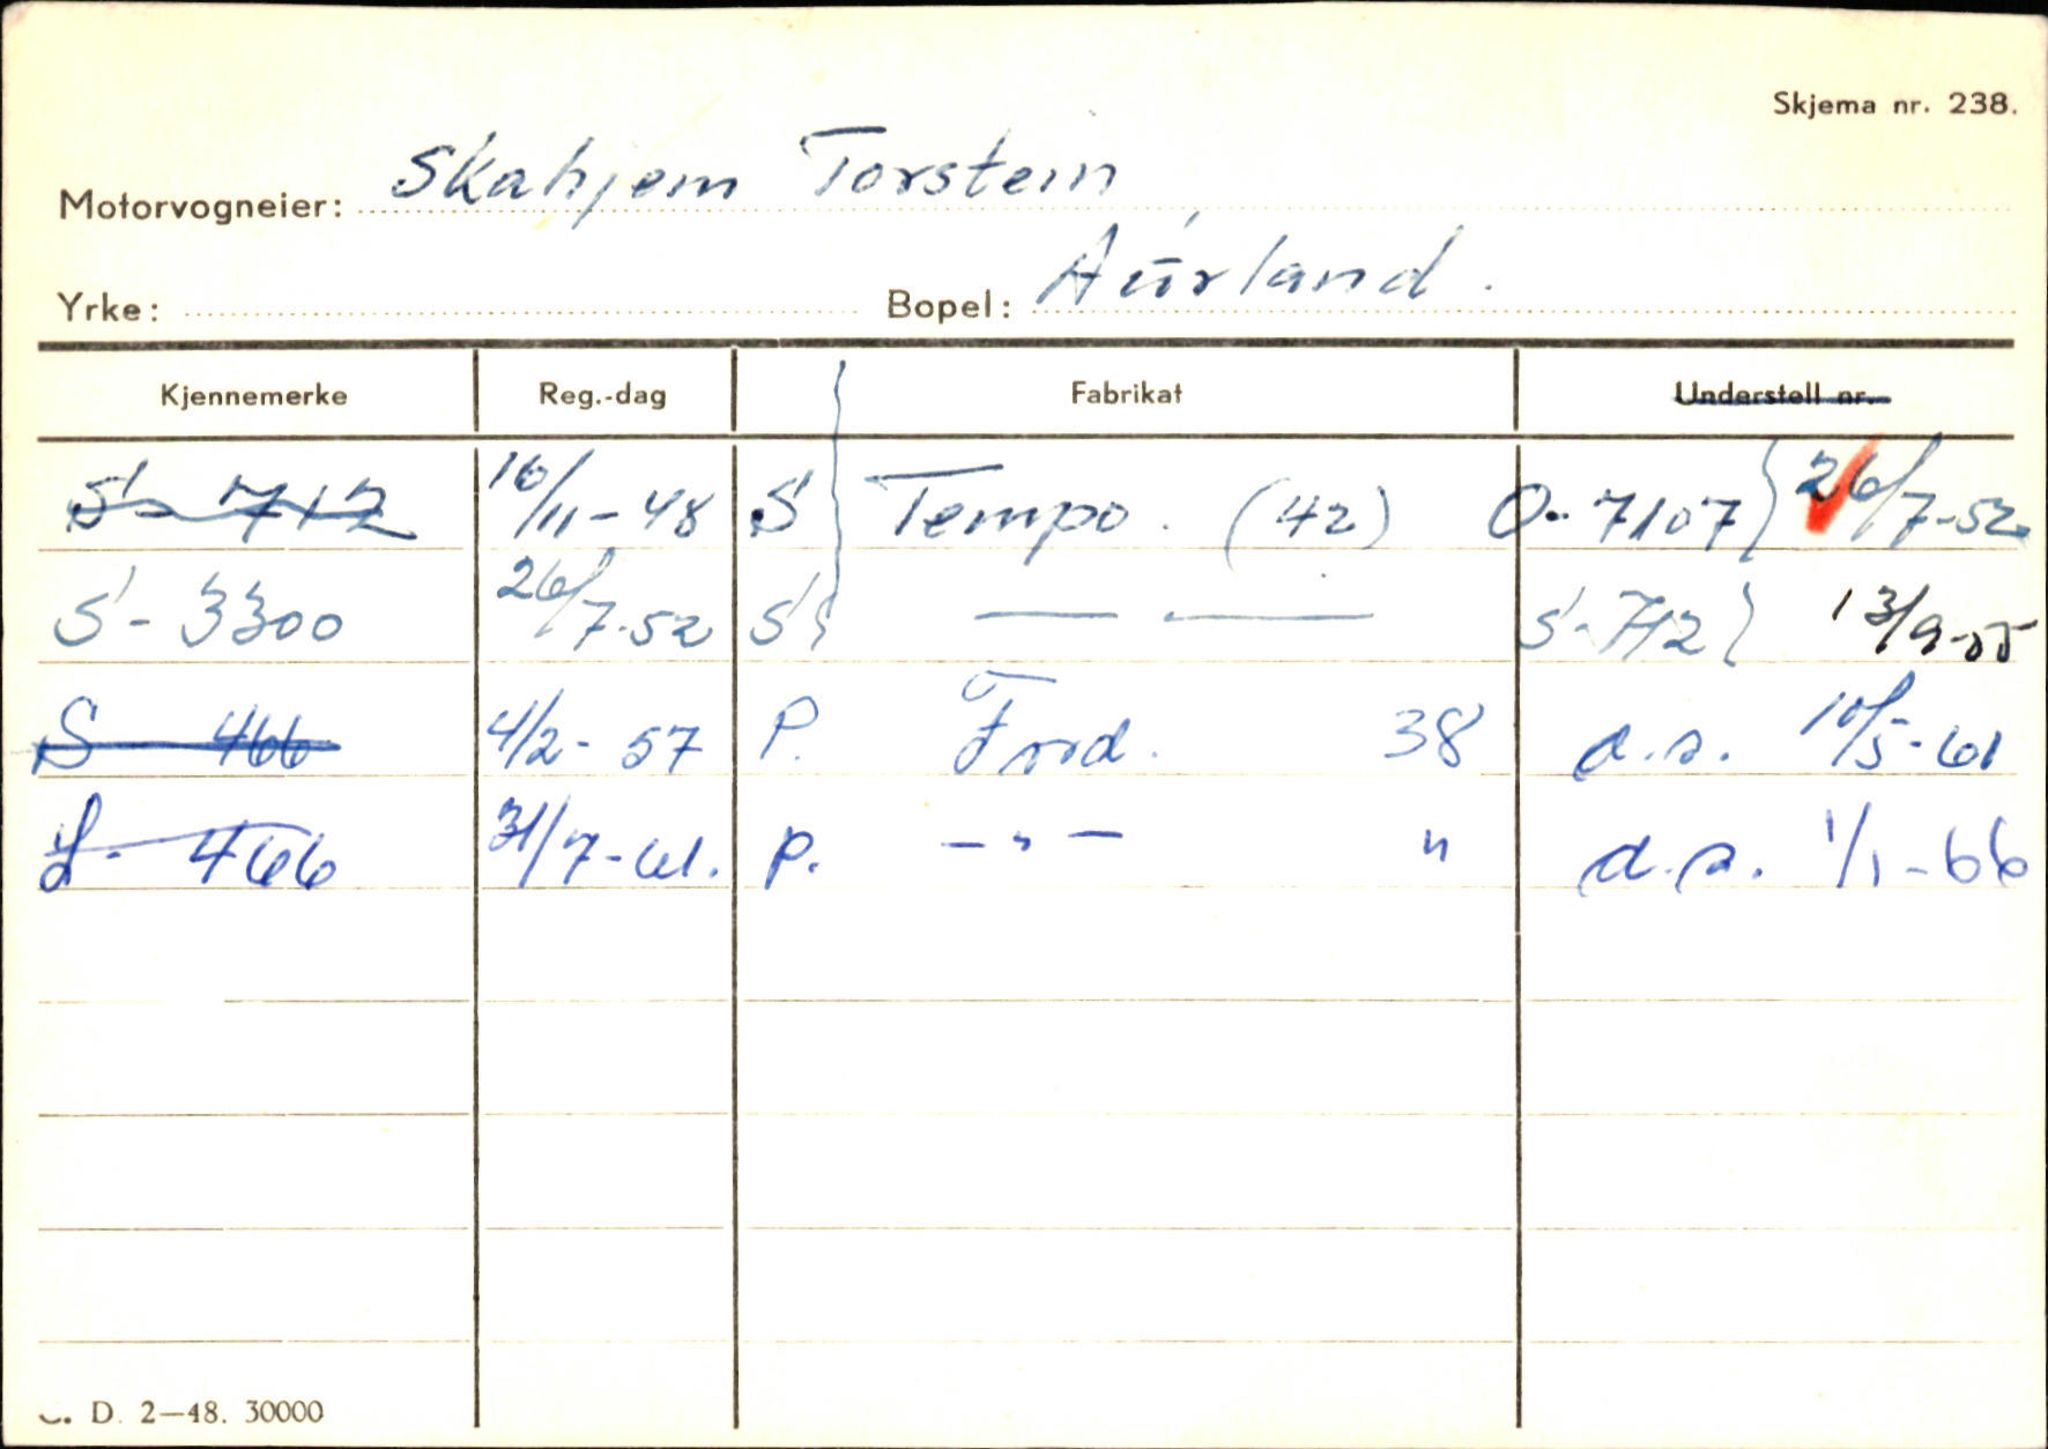 Skjema nr. 238.
Motorvogneier: Skahjem Torstein
Yrke: Bopel: Aurland.
Kjennemerke Reg.-dag Fabrikat Understell nr.
S- 712 16/11-48 S Tempo. (42) O-7107 26/7-52
S- 3300 26/7-52 S — — S-712 13/9-55
S 466 4/2- 57 P. Ford. 38 d.s. 10/5-61
L- 466 31/7-61. P. - " - " d.s. 1/1-66
D. 2—48. 30000